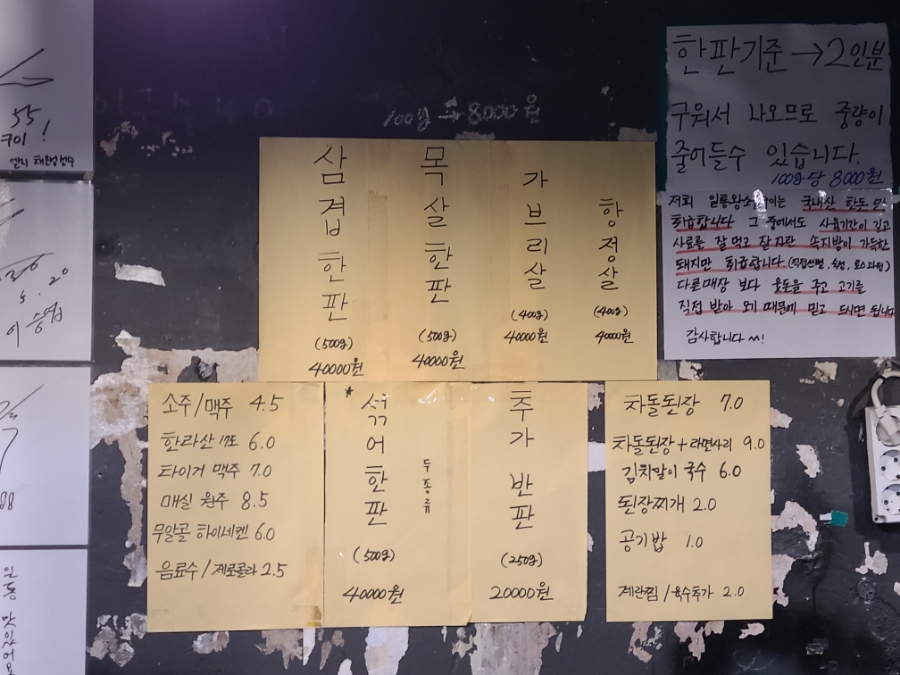 55
100g → 8000원
삼겹한판
(500g)
40000원
목살한판
(500g)
40000원
가브리살
(400g)
40000원
항정살
(400g)
40000원
한판기준 → 2인분
구워서 나오므로 중량이
줄어들수 있습니다.
100g당 8000원
저희 일룡왕소금구이는 국내산 한돈 만
취급합니다 그 중에서도 사육기간이 길고
사료를 잘 먹고 잘 자란 속지방이 가득한
돼지만 취급합니다.
다른매장 보다 웃돈을 주고 고기를
직접 받아 오기 때문에 믿고 드시면 됩니다
감사합니다 ^^!
소주/맥주 4.5
한라산 17도 6.0
타이거 맥주 7.0
매실 원주 8.5
무알콜 하이네켄 6.0
음료수/제로콜라 2.5
*섞어한판
두종류
(500g)
40000원
추가 반판
(250g)
20000원
차돌된장 7.0
차돌된장+라면사리 9.0
김치말이 국수 6.0
된장찌개 2.0
공기밥 1.0
계란찜/육수추가 2.0